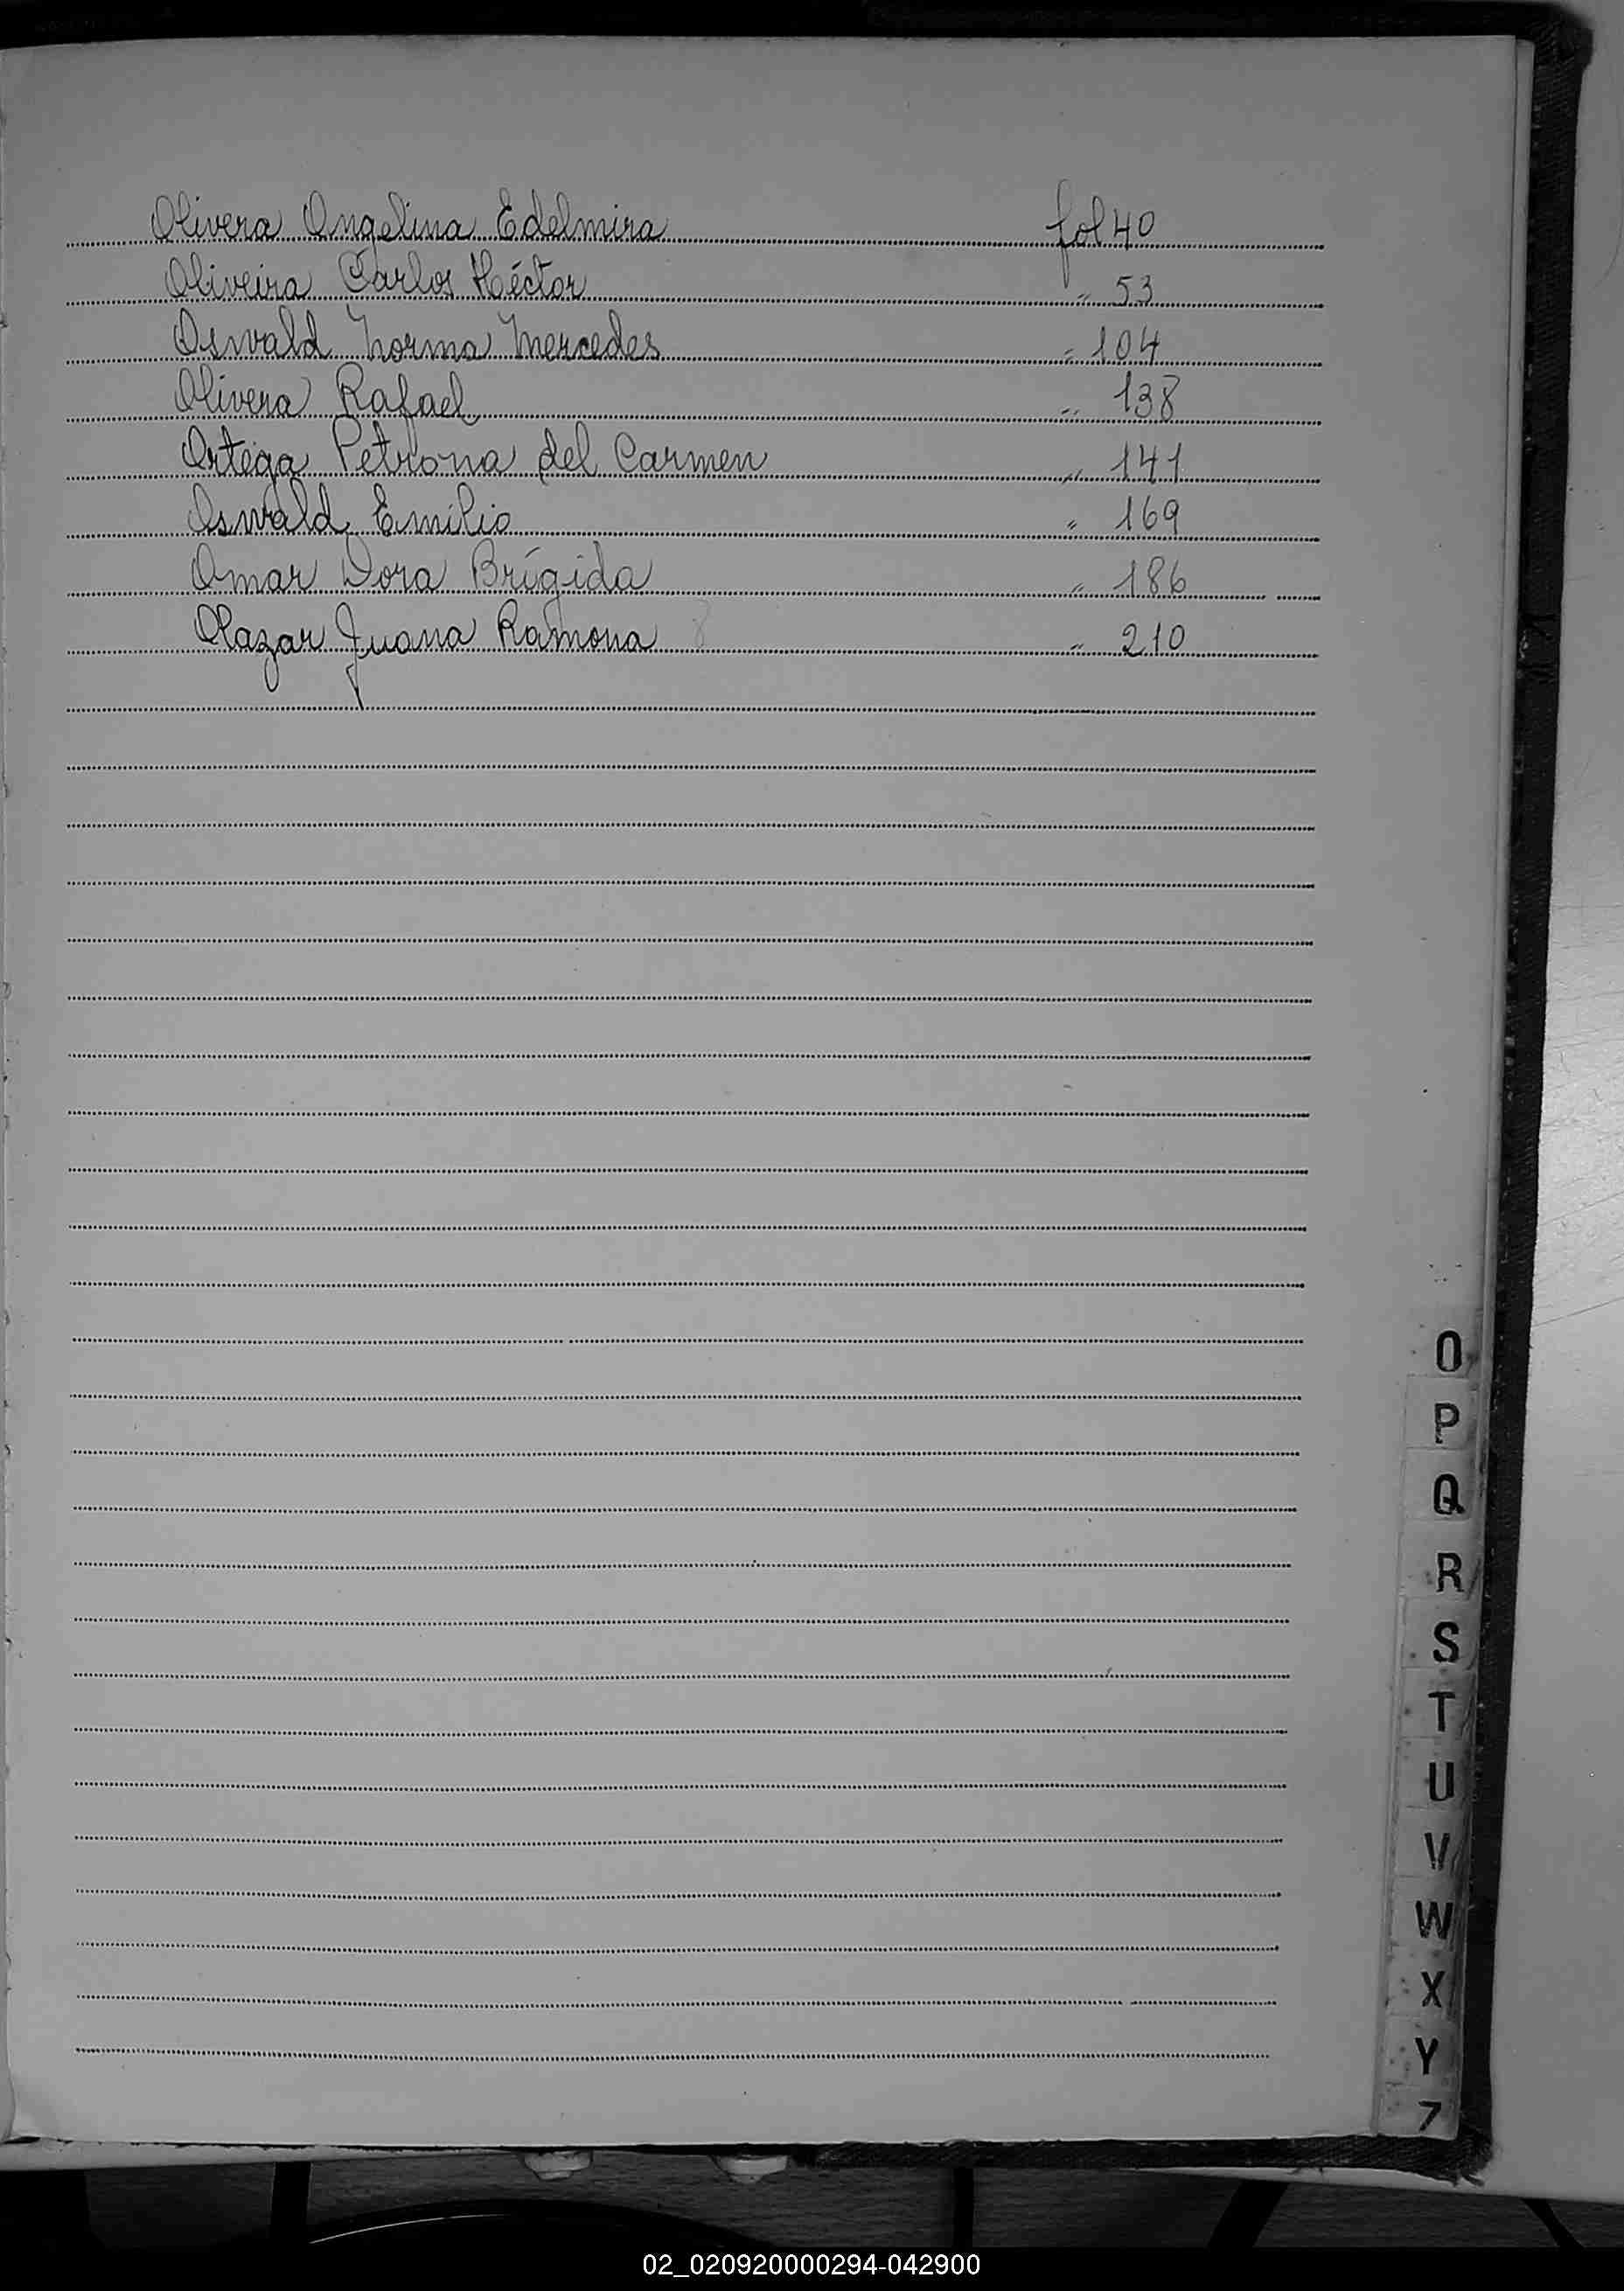 Olivera Angelina Edelmira fol 40
Oliveira Carlos Héctor " 53
Oswald Norma Mercedes " 104
Olivera Rafael " 138
Ortega Petrona del Carmen " 141
Oswald Emilio " 169
Omar Dora Brígida " 186
Olazar Juana Ramona " 210
O
P
Q
R
S
T
U
V
W
X
Y
Z
02_020920000294-042900